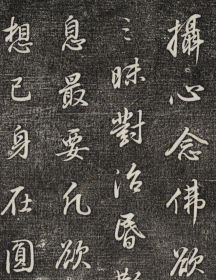 攝心念佛欲
三昧對治昏
息最要凡欲
想已身在圓